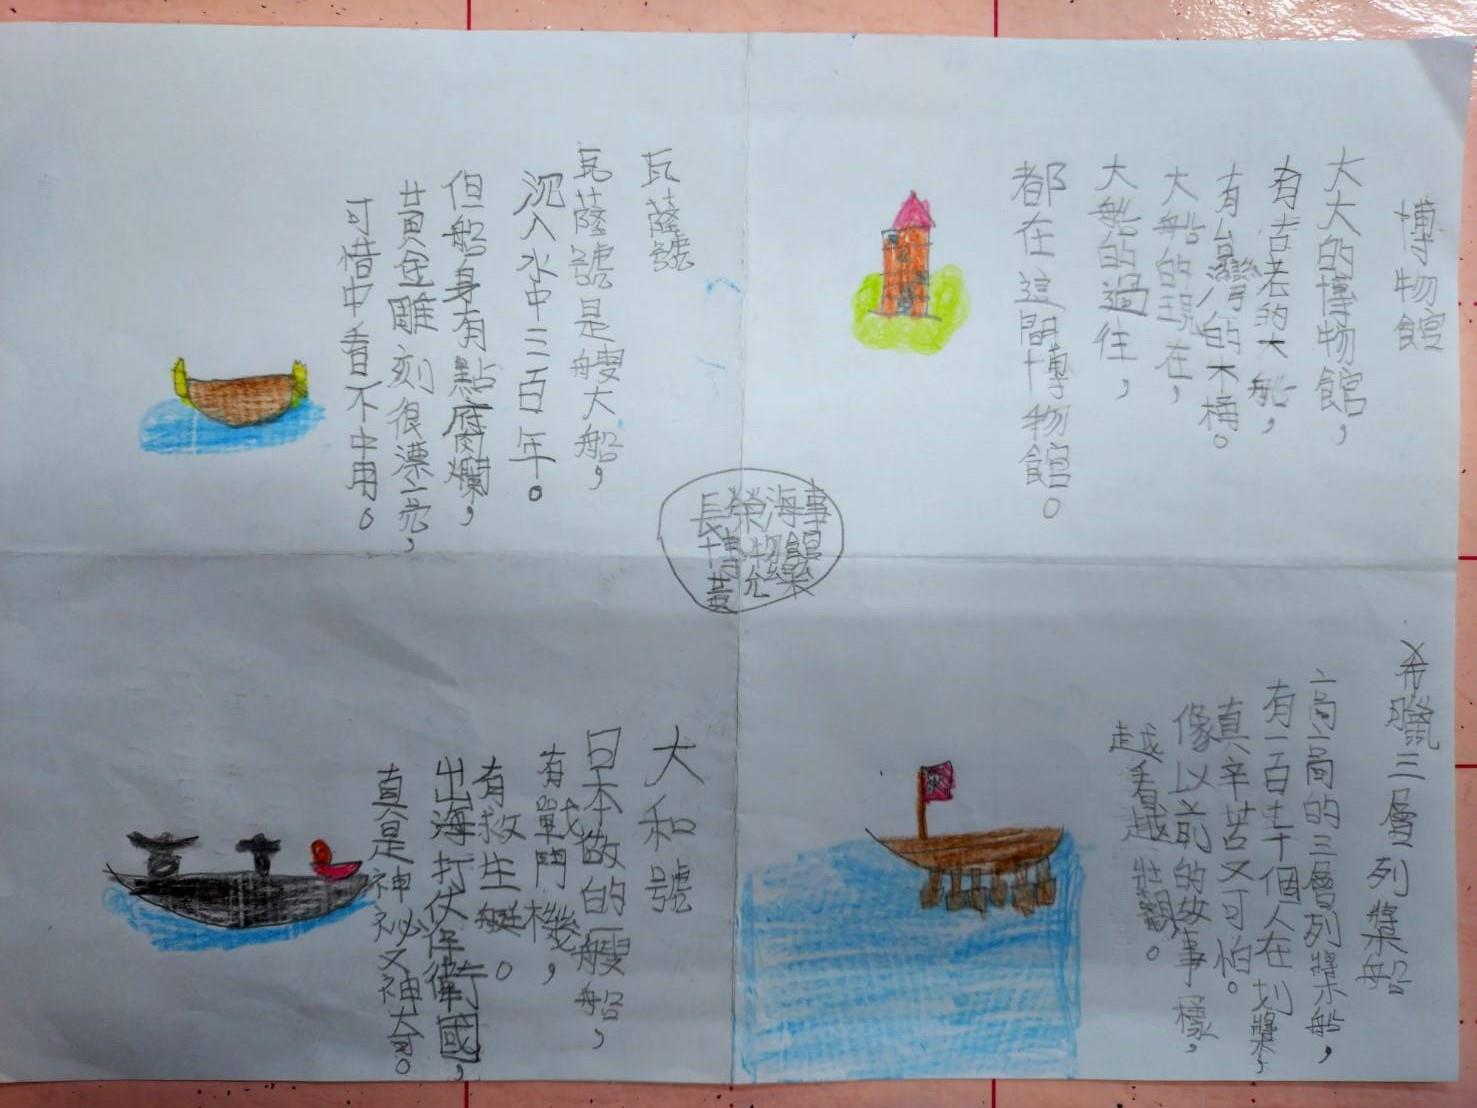 博物館
大大的博物館，
有古老的大船，
有台灣的木桶。
大船的現在，
大船的過往，
都在這間博物館。
瓦薩號
瓦薩號是艘大船，
沉入水中三百年。
但船身有點腐爛，
黃金雕刻很漂亮，
可惜中看不中用。
長榮海事
博物館
黃允樂
希臘三層列槳船
高高的三層列槳船，
有一百七十個人在划槳，
真辛苦又可怕。
像以前的故事一樣，
越看越壯觀。
大和號
日本做的一艘船，
有戰鬥機，
有救生艇。
出海打仗保衛國，
真是神祕又神奇。